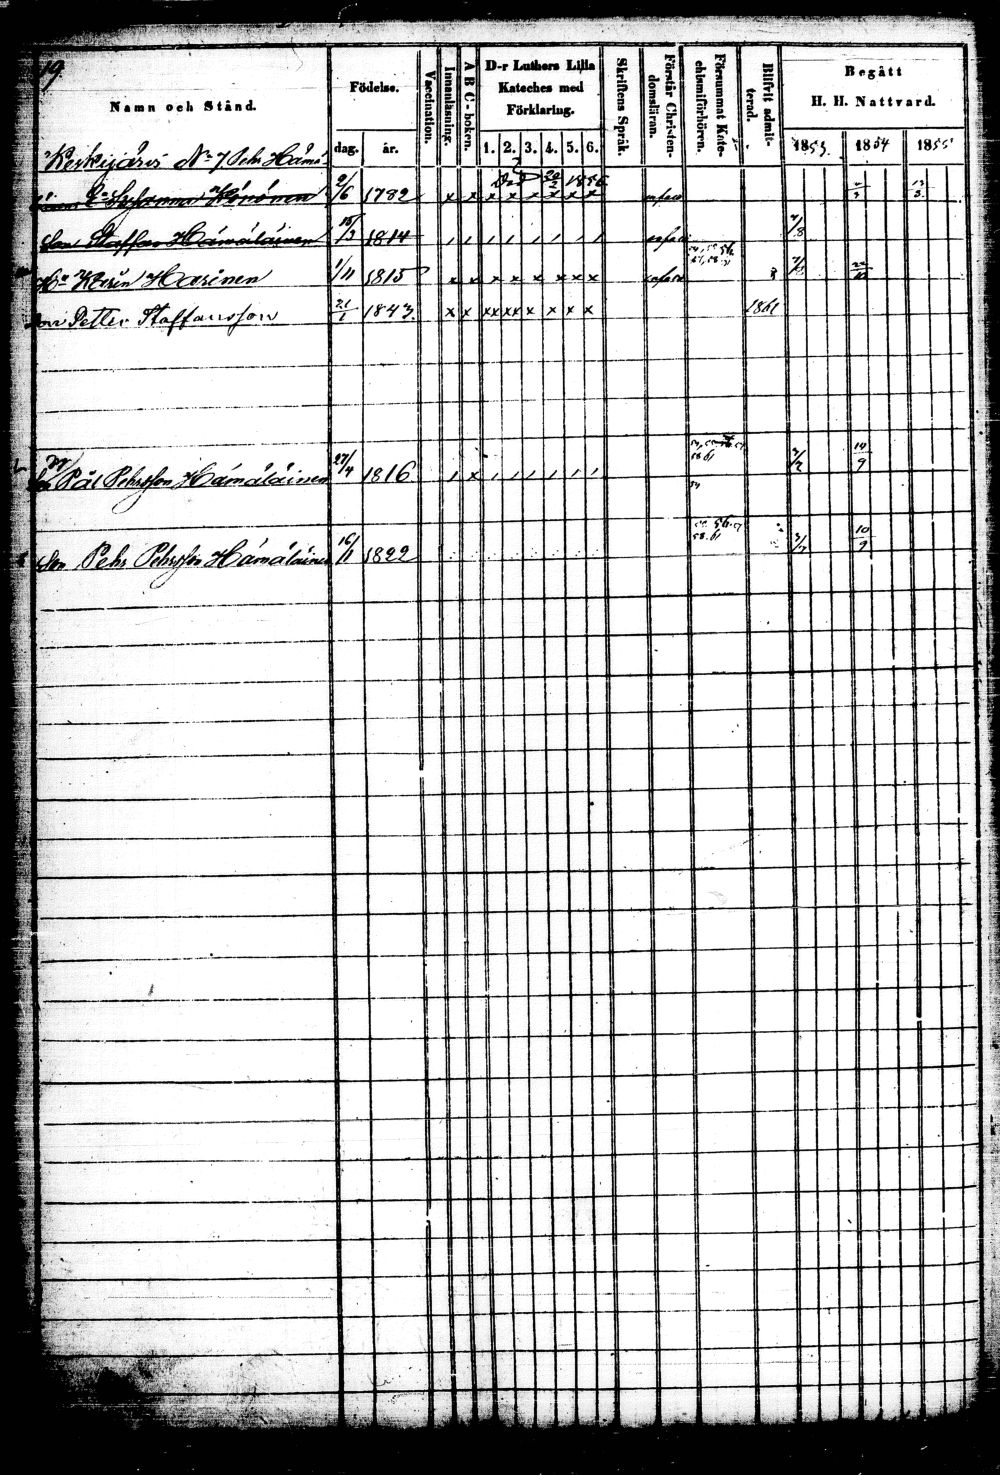 19.
Namn och Stånd.
Födelse.
dag. år.
Vaccination.
Innanläsning.
A B C-boken.
D-r Luthers Lilla
Kateches med
Förklaring.
1. 2. 3. 4. 5. 6.
Skriftens Språk.
Förstår Christen-
domsläran.
Försummat Kate-
chismiförhören.
Blifvit admit-
terad.
Begått
H. H. Nattvard.
1853 1854 1855
Kerkijärvi No 7 Pehr Hämä
Död 20/2 1856
Susanna Könönen 2/6 1782 x x x x x x x x
Son Staffan Hämäläinen 15/3 1814
Hu Karin Harinen 1/11 1815 x x x x x x x x
Son Petter Staffansson 21/1 1843. x x xx xx x x x x 1861
Pål Pehrsson Hämäläinen 27/4 1816 14/9
54
Son Pehr Pehrsson Hämäläinen 16/11 1822 10/9